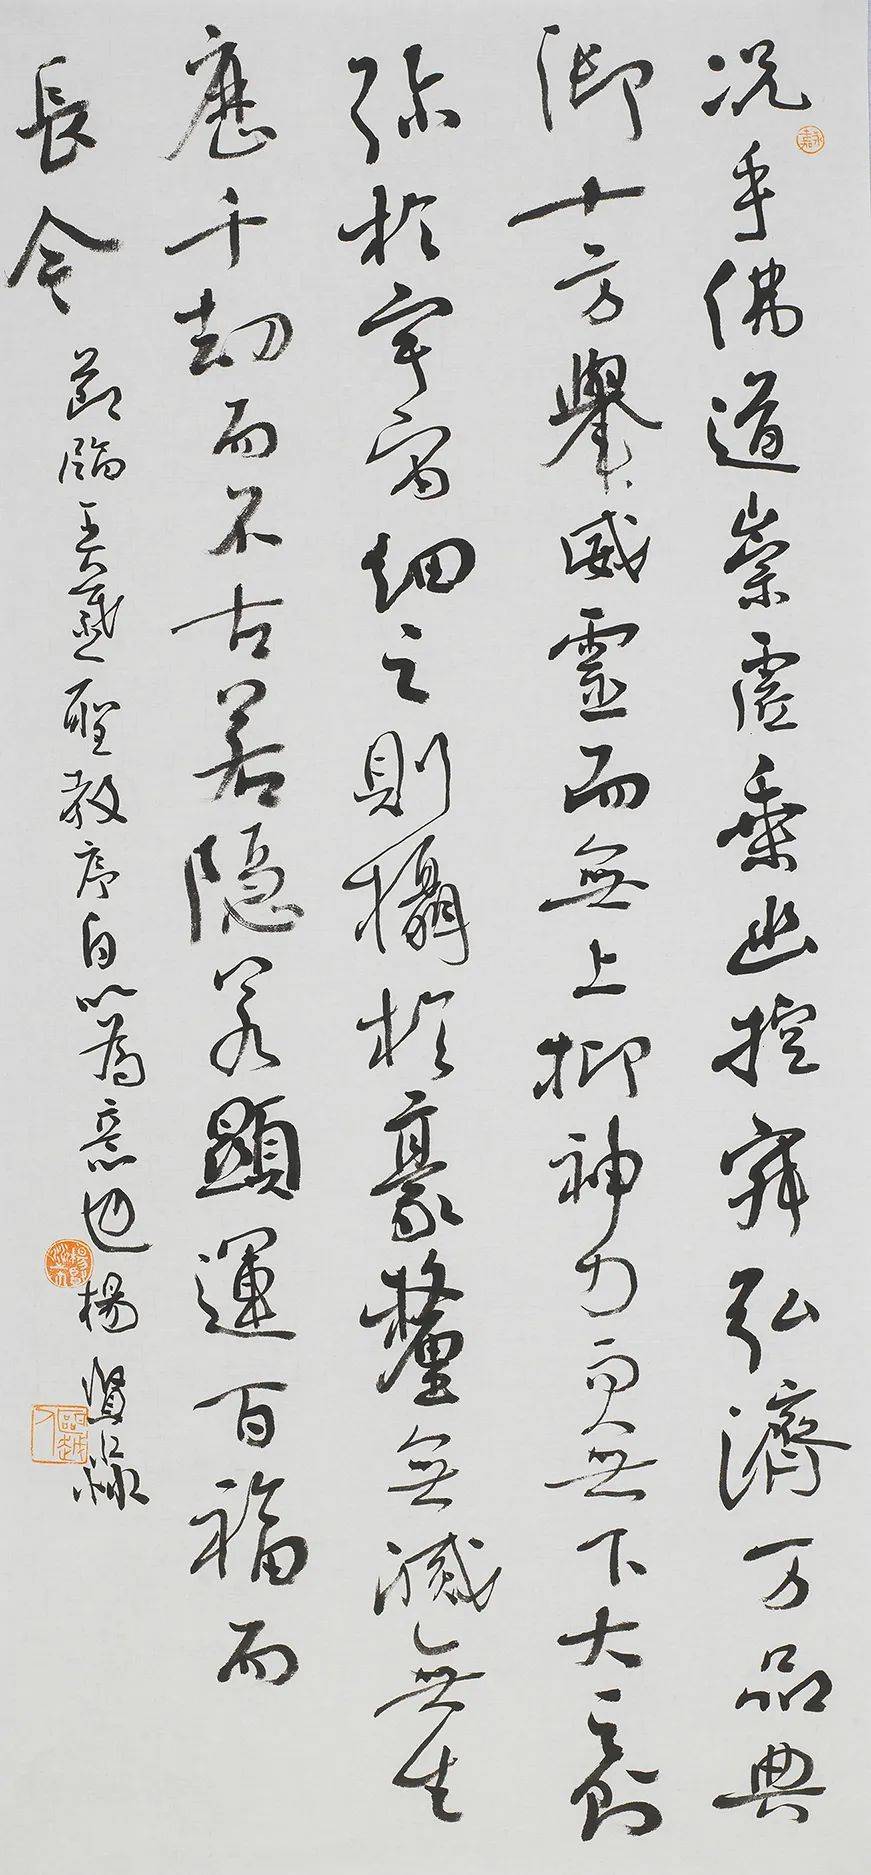 况乎佛道崇虛乘幽控寂弘濟万品典
御十方舉威靈而無上抑神力而無下大之則
弥於宇宙細之則攝於豪釐無滅無生
歷千劫而不古若隱若顯運百福而
長今
節臨王羲之聖教序自以為意也楊賢
永嘉